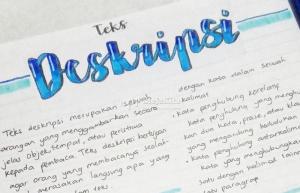 Teks
Deskripsi
Teks deskripsi merupakan sebuah
arangan yang menggambarkan secara
jelas objek, tempat, atau peristiwa
kepada pembaca. Teks deskripsi bertujuan
agar orang yang membacanya seolah-
merasakan langsung apa yang
teks.
dengan kata dalam sebuah
kalimat
kata penghubung korelatif
kata penghubung yang menghu
kan dua kata, frase, atau kla
yang mengandung kedudukan
kata penghubung antarkalimat
kata yang menghubungkan
satu dengan kalimat lainn